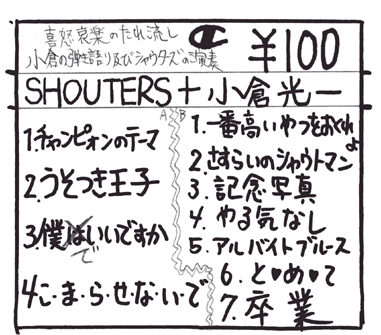 喜怒哀楽のたれ流し
小倉の弾き語り及びシャウターズの演奏
¥100
SHOUTERS+小倉光一
A B
1.チャンピオンのテーマ
2.うそつき王子
3.僕はいいですか
で
4.こ・ま・ら・せ・な・い・で
1.一番高いやつをおくれよ
2.さすらいのシャウトマン
3.記念写真
4.やる気なし
5.アルバイトブルース
6.と♥め♥て
7.卒業